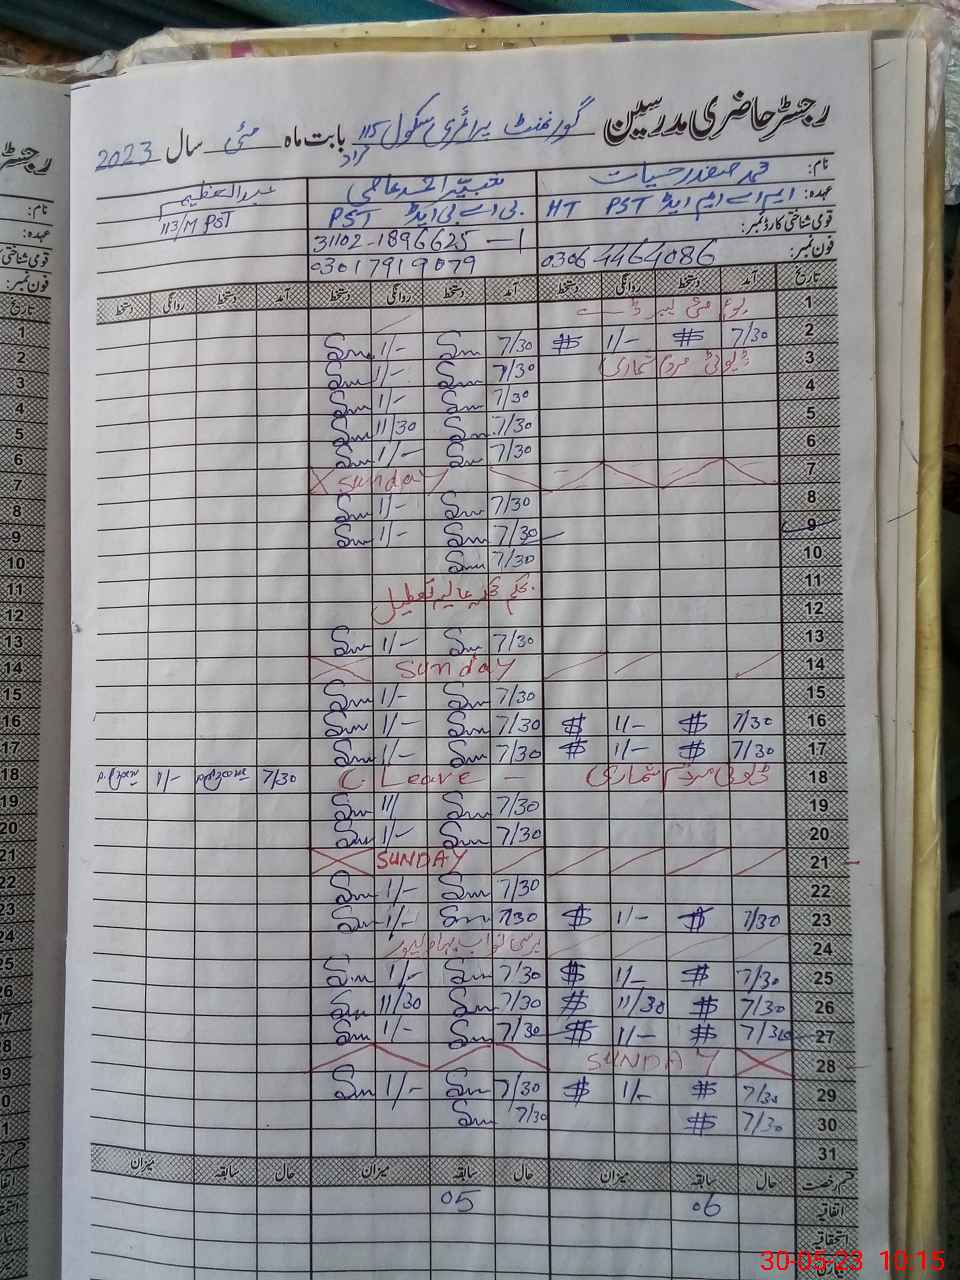 رجسٹر حاضری مدرسین گورنمنٹ پرائمری سکول 115 مراد بابت ماہ مئی سال 2023
نام: محمد صفدر حیات
عہدہ: ایم اے ایم ایڈ PST HT بی اے بی ایڈ PST 113/M PST عبدالعظیم
قومی شناختی کارڈ نمبر: 31102-1896625-1
فون نمبر: 0306 4464086 03017919079
تاریخ آمد دستخط روانگی دستخط آمد دستخط روانگی دستخط آمد دستخط روانگی دستخط
1 یوم مئی لیبر ڈے
2 7/30 1/- 7/30 1/-
3 ڈیوٹی مردم شماری 7/30 1/-
4 7/30 1/-
5 7/30 11/30
6 7/30 1/-
7 Sunday
8 7/30 1/-
9 7/30 1/-
10 7/30
11 بحکم عالیہ تعطیل
12
13 7/30 1/-
14 Sunday
15 7/30 1/-
16 7/30 1/- 7/30 1/-
17 7/30 1/- 7/30 1/-
18 ڈیوٹی مردم شماری C. Leave 7/30 1/-
19 7/30 1/
20 7/30 1/-
21 SUNDAY
22 7/30 1/-
23 7/30 1/- 7/30 1/-
24 برسی نواب بہاولپور
25 7/30 1/- 7/30 1/-
26 7/30 11/30 7/30 11/30
27 7/30 1/- 7/30 1/-
28 SUNDAY
29 7/30 1/- 7/30 1/-
30 7/30 7/30
31
قسم رخصت حال سابقہ میزان حال سابقہ میزان حال سابقہ میزان
اتفاقیہ 06 05
استحقاقیہ
30-05-23 10:15